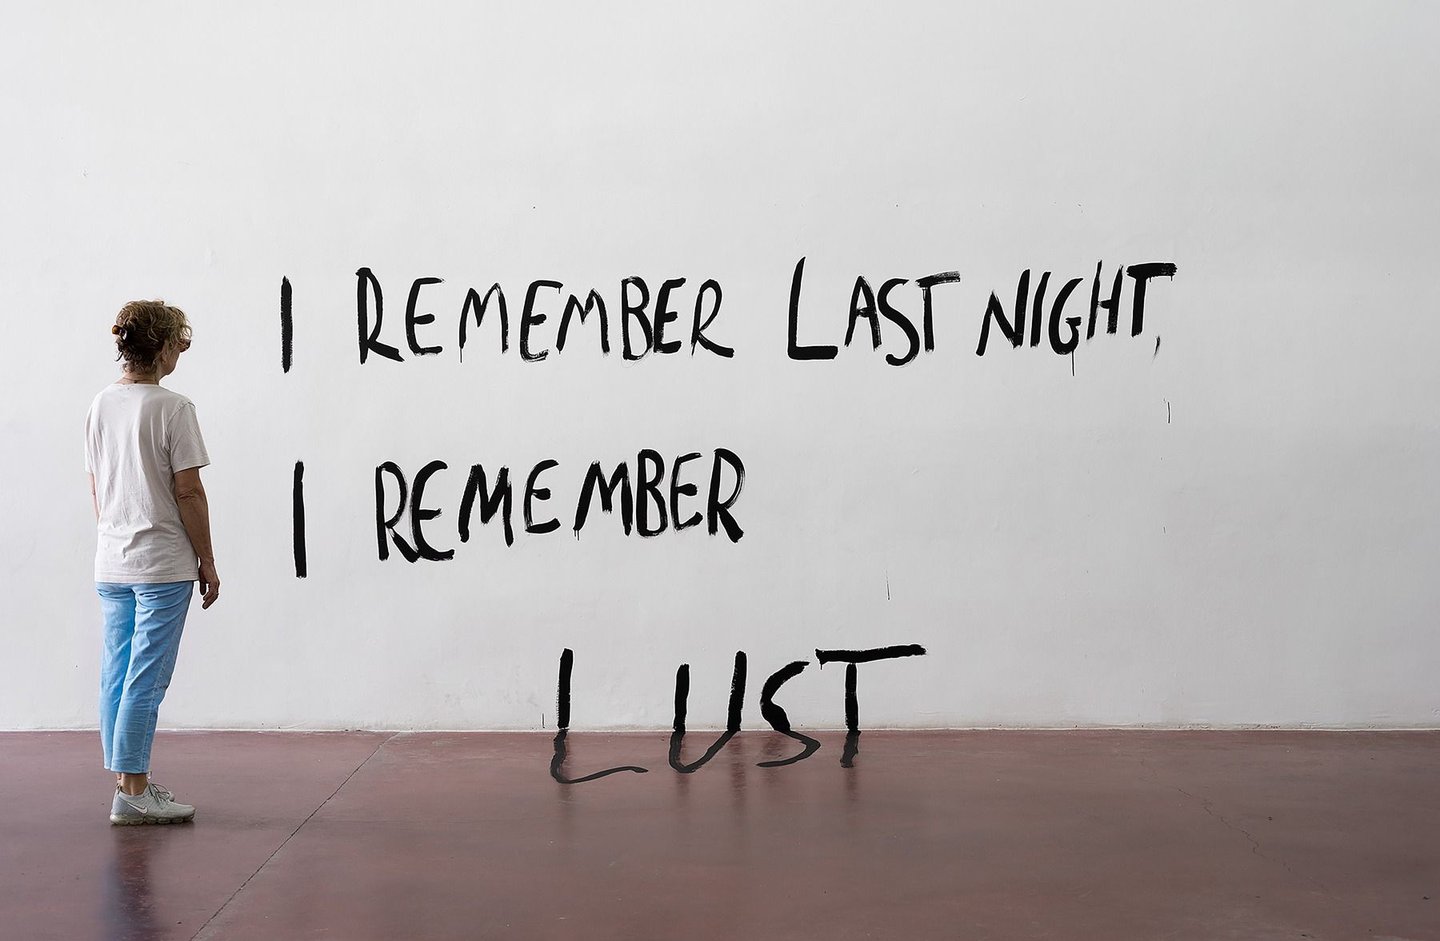 I REMEMBER LAST NIGHT,
I REMEMBER
LUST